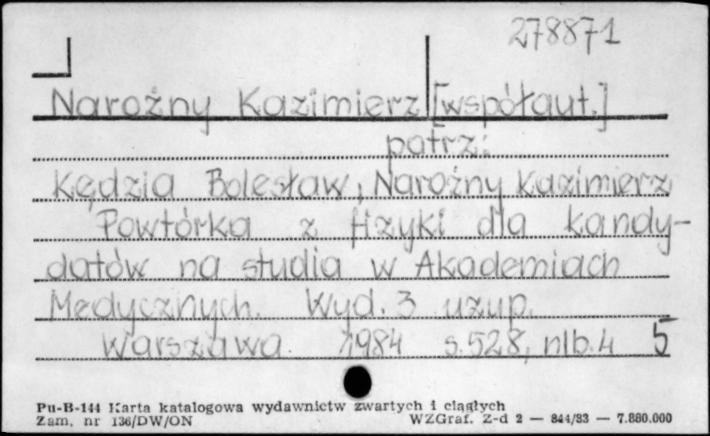 278871
Narożny Kazimierz [współaut.]
patrz:
Kędzia Bolesław, Narożny Kazimierz
Powtórka z fizyki dla kandy-
datów na studia w Akademiach
Medycznych. Wyd. 3 uzup.
Warszawa 1984 s. 528, nlb. 4 5
Pu-B-144 Karta katalogowa wydawnictw zwartych i ciągłych
Zam. nr 136/DW/ON WZGraf. Z-d 2 — 844/83 — 7.880.000